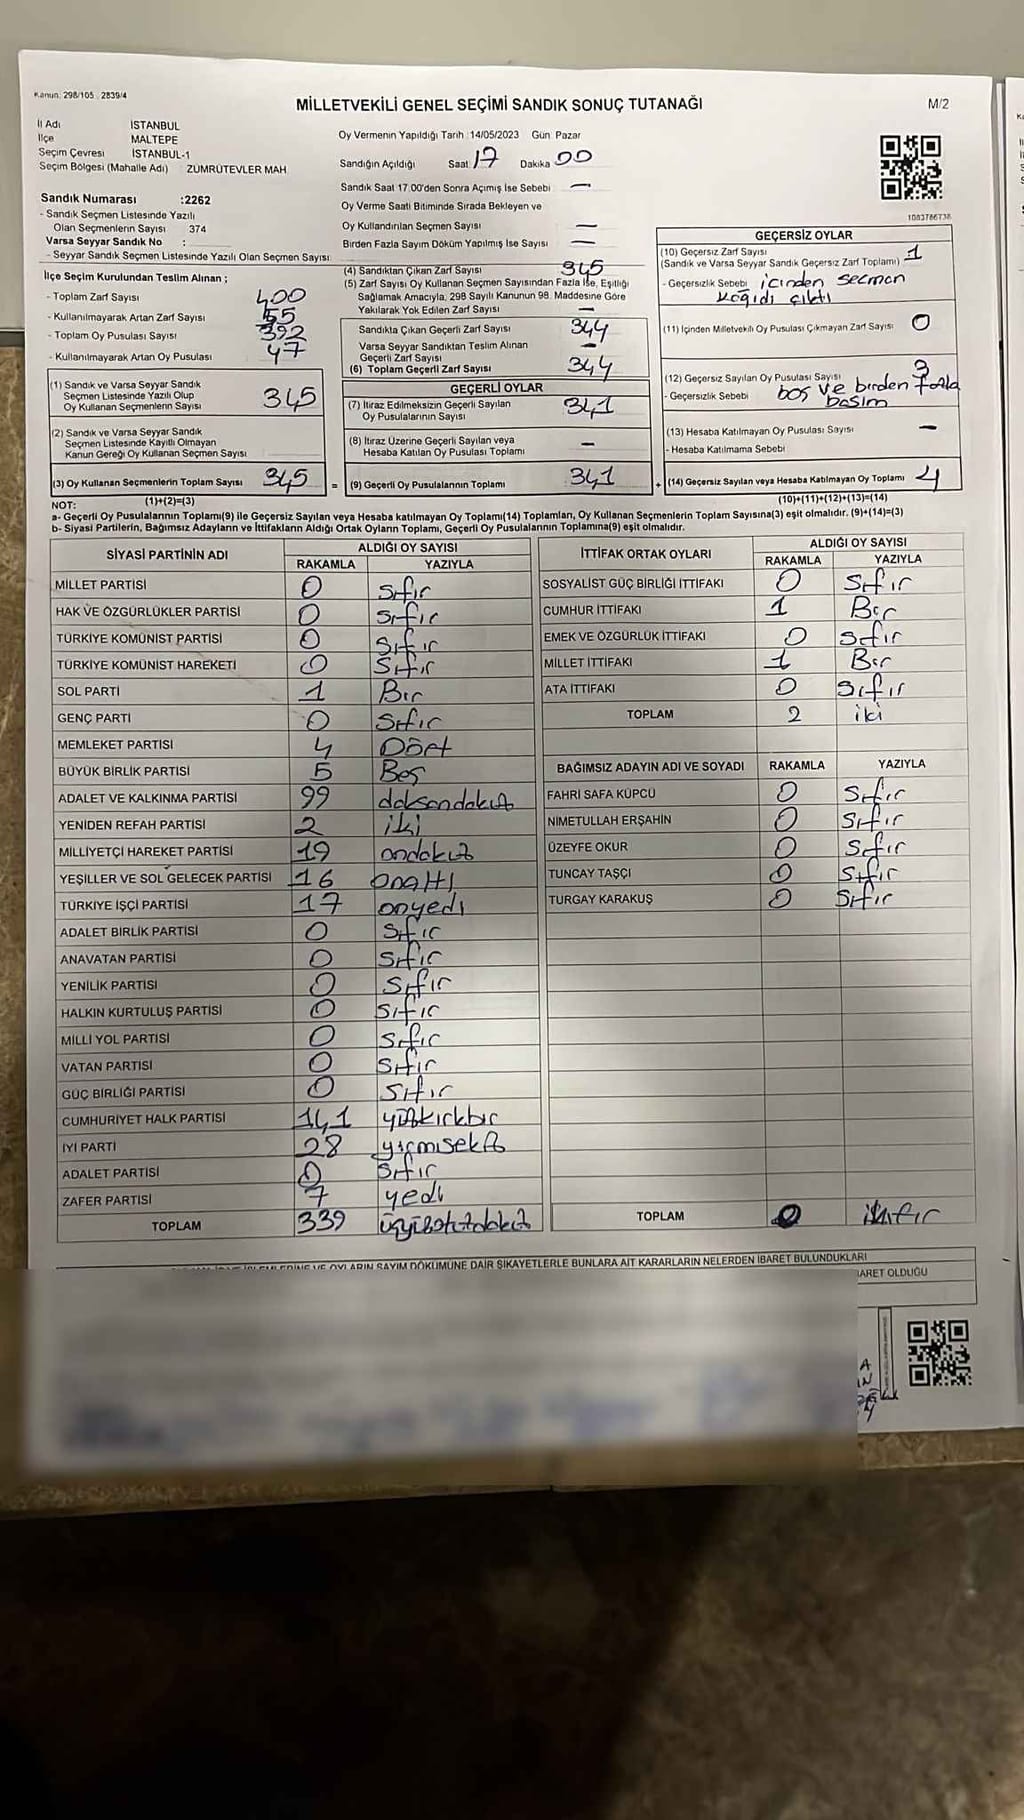 Kanun: 298/105, 2839/4
MİLLETVEKİLİ GENEL SEÇİMİ SANDIK SONUÇ TUTANAĞI
M/2
İl Adı İSTANBUL
İlçe MALTEPE
Seçim Çevresi İSTANBUL-1
Seçim Bölgesi (Mahalle Adı) ZÜMRÜTEVLER MAH
Oy Vermenin Yapıldığı Tarih :14/05/2023 Gün: Pazar
Sandığın Açıldığı Saat 17 Dakika 00
Sandık Saat 17.00'den Sonra Açımış İse Sebebi —
Oy Verme Saati Bitiminde Sırada Bekleyen ve
Oy Kullandırılan Seçmen Sayısı —
Birden Fazla Sayım Döküm Yapılmış İse Sayısı —
1083786738
Sandık Numarası :2262
- Sandık Seçmen Listesinde Yazılı
Olan Seçmenlerin Sayısı 374
Varsa Seyyar Sandık No :
- Seyyar Sandık Seçmen Listesinde Yazılı Olan Seçmen Sayısı:
İlçe Seçim Kurulundan Teslim Alınan ;
- Toplam Zarf Sayısı 400
- Kullanılmayarak Artan Zarf Sayısı 55
- Toplam Oy Pusulası Sayısı 392
- Kullanılmayarak Artan Oy Pusulası 47
(1) Sandık ve Varsa Seyyar Sandık
Seçmen Listesinde Yazılı Olup
Oy Kullanan Seçmenlerin Sayısı 345
(2) Sandık ve Varsa Seyyar Sandık
Seçmen Listesinde Kayıtlı Olmayan
Kanun Gereği Oy Kullanan Seçmen Sayısı
(3) Oy Kullanan Seçmenlerin Toplam Sayısı 345 =
(1)+(2)=(3)
(4) Sandıktan Çıkan Zarf Sayısı 345
(5) Zarf Sayısı Oy Kullanan Seçmen Sayısından Fazla İse, Eşitliği
Sağlamak Amacıyla, 298 Sayılı Kanunun 98. Maddesine Göre
Yakılarak Yok Edilen Zarf Sayısı —
Sandıkta Çıkan Geçerli Zarf Sayısı 344
Varsa Seyyar Sandıktan Teslim Alınan
Geçerli Zarf Sayısı —
(6) Toplam Geçerli Zarf Sayısı 344
GEÇERLİ OYLAR
(7) İtiraz Edilmeksizin Geçerli Sayılan
Oy Pusulalarının Sayısı 341
(8) İtiraz Üzerine Geçerli Sayılan veya
Hesaba Katılan Oy Pusulası Toplamı —
(9) Geçerli Oy Pusulalarının Toplamı 341 +
GEÇERSİZ OYLAR
(10) Geçersiz Zarf Sayısı 1
(Sandık ve Varsa Seyyar Sandık Geçersiz Zarf Toplamı)
- Geçersizlik Sebebi içinden secmen
kağıdı çıktı
(11) İçinden Milletvekili Oy Pusulası Çıkmayan Zarf Sayısı 0
(12) Geçersiz Sayılan Oy Pusulası Sayısı 3
- Geçersizlik Sebebi boş ve birden fazla
basım
(13) Hesaba Katılmayan Oy Pusulası Sayısı —
- Hesaba Katılmama Sebebi
(14) Geçersiz Sayılan veya Hesaba Katılmayan Oy Toplamı 4
(10)+(11)+(12)+(13)=(14)
NOT:
a- Geçerli Oy Pusulalarının Toplamı(9) ile Geçersiz Sayılan veya Hesaba katılmayan Oy Toplamı(14) Toplamları, Oy Kullanan Seçmenlerin Toplam Sayısına(3) eşit olmalıdır. (9)+(14)=(3)
b- Siyasi Partilerin, Bağımsız Adayların ve İttifakların Aldığı Ortak Oyların Toplamı, Geçerli Oy Pusulalarının Toplamına(9) eşit olmalıdır.
SİYASİ PARTİNİN ADI ALDIĞI OY SAYISI
RAKAMLA YAZIYLA
MİLLET PARTİSİ 0 sıfır
HAK VE ÖZGÜRLÜKLER PARTİSİ 0 sıfır
TÜRKİYE KOMÜNİST PARTİSİ 0 sıfır
TÜRKİYE KOMÜNİST HAREKETİ 0 sıfır
SOL PARTİ 1 Bir
GENÇ PARTİ 0 sıfır
MEMLEKET PARTİSİ 4 Dört
BÜYÜK BİRLİK PARTİSİ 5 Beş
ADALET VE KALKINMA PARTİSİ 99 doksandokuz
YENİDEN REFAH PARTİSİ 2 iki
MİLLİYETÇİ HAREKET PARTİSİ 19 ondokuz
YEŞİLLER VE SOL GELECEK PARTİSİ 16 onaltı
TÜRKİYE İŞÇİ PARTİSİ 17 onyedi
ADALET BİRLİK PARTİSİ 0 sıfır
ANAVATAN PARTİSİ 0 sıfır
YENİLİK PARTİSİ 0 sıfır
HALKIN KURTULUŞ PARTİSİ 0 sıfır
MİLLİ YOL PARTİSİ 0 sıfır
VATAN PARTİSİ 0 sıfır
GÜÇ BİRLİĞİ PARTİSİ 0 sıfır
CUMHURİYET HALK PARTİSİ 141 yüzkırkbir
İYİ PARTİ 28 yirmisekiz
ADALET PARTİSİ 0 sıfır
ZAFER PARTİSİ 7 yedi
TOPLAM 339 üçyüzotuzdokuz
İTTİFAK ORTAK OYLARI ALDIĞI OY SAYISI
RAKAMLA YAZIYLA
SOSYALİST GÜÇ BİRLİĞİ İTTİFAKI 0 sıfır
CUMHUR İTTİFAKI 1 Bir
EMEK VE ÖZGÜRLÜK İTTİFAKI 0 sıfır
MİLLET İTTİFAKI 1 Bir
ATA İTTİFAKI 0 sıfır
TOPLAM 2 iki
BAĞIMSIZ ADAYIN ADI VE SOYADI RAKAMLA YAZIYLA
FAHRİ SAFA KÜPCÜ 0 sıfır
NİMETULLAH ERŞAHİN 0 sıfır
ÜZEYFE OKUR 0 sıfır
TUNCAY TAŞÇI 0 sıfır
TURGAY KARAKUŞ 0 sıfır
TOPLAM 0
OYLARIN SAYIM DÖKÜMÜNE DAİR ŞİKAYETLERLE BUNLARA AİT KARARLARIN NELERDEN İBARET BULUNDUKLARI
İBARET OLDUĞU